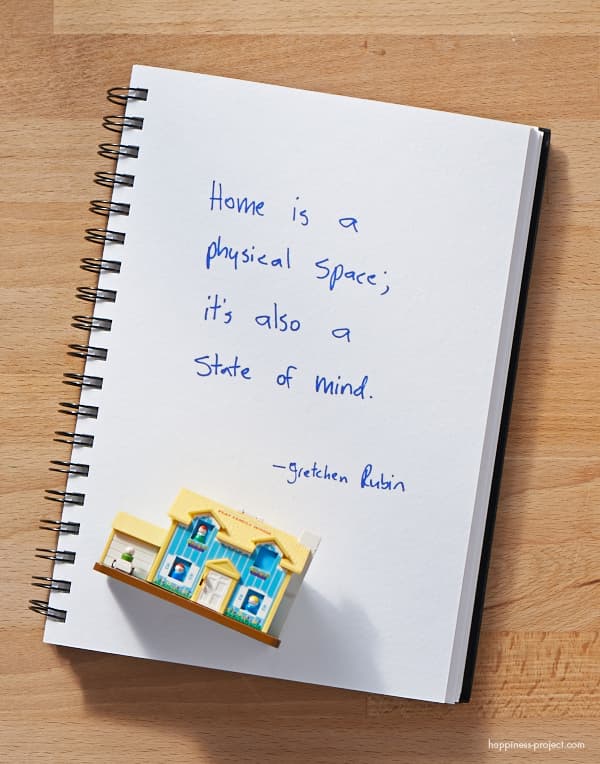 Home is a
physical space;
it's also a
state of mind.
-gretchen Rubin
PLAY FAMILY HOUSE
happiness-project.com